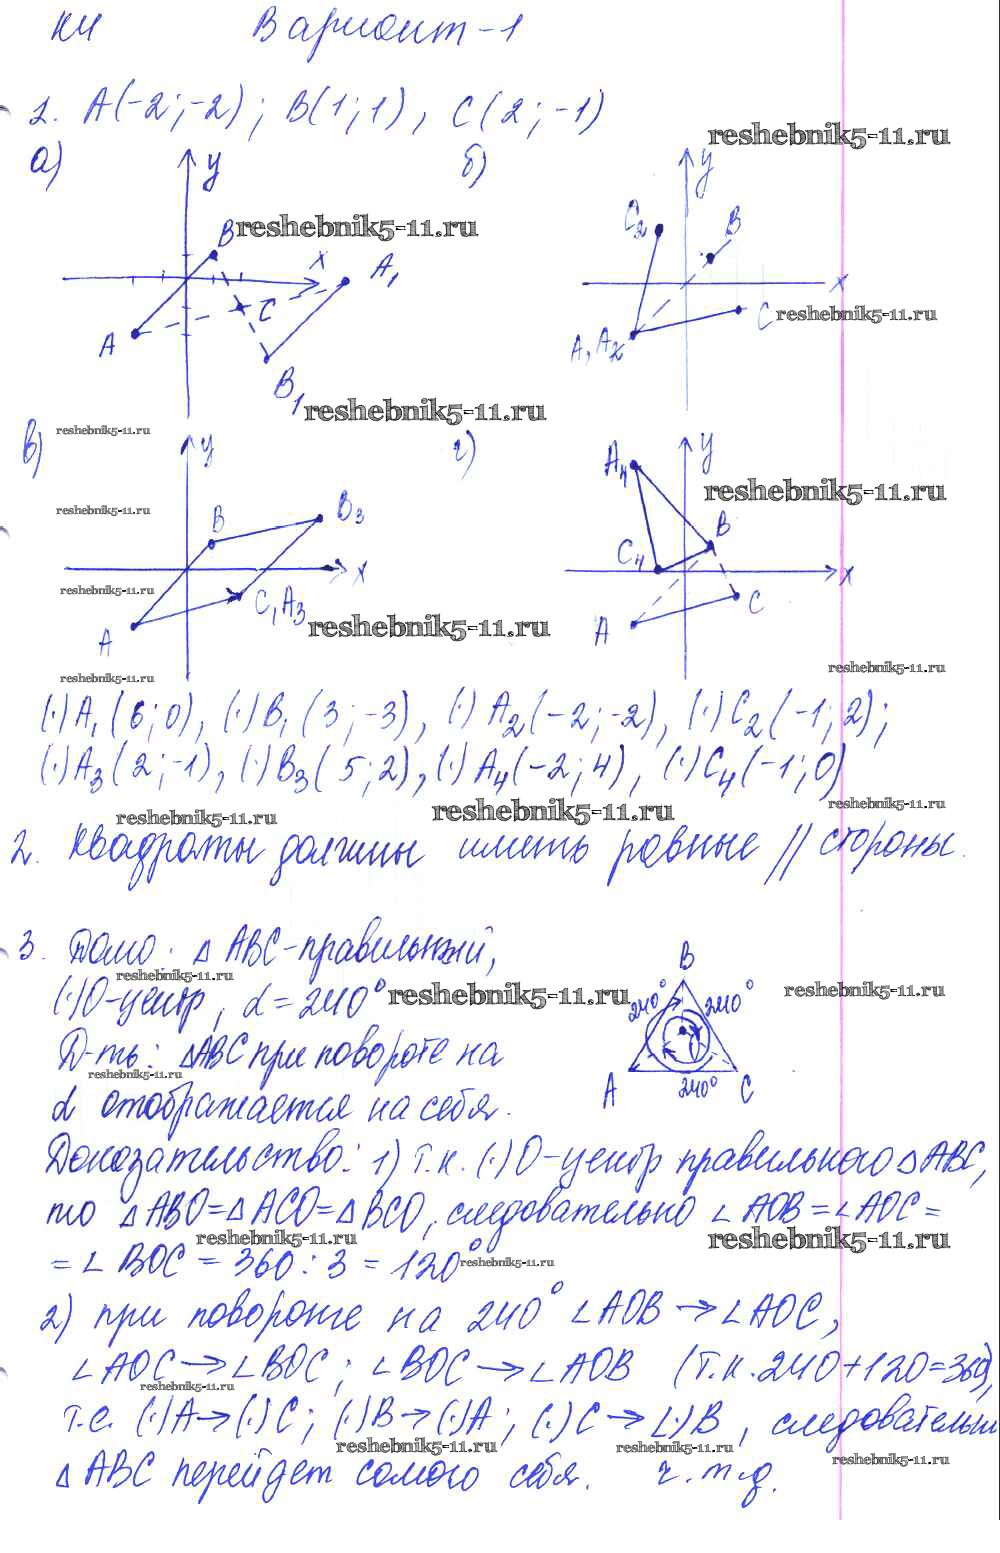 К4 Вариант-1
1. A(-2;-2); B(1;1), C(2;-1)
reshebnik5-11.ru
а) y б) y
C₂ B
B reshebnik5-11.ru
x A₁
C x
A C reshebnik5-11.ru
A, A₂
B₁ reshebnik5-11.ru
в) reshebnik5-11.ru y г) y
A₄
reshebnik5-11.ru
reshebnik5-11.ru B B₃
B
C₄
x x
reshebnik5-11.ru
C, A₃ C
A reshebnik5-11.ru A
reshebnik5-11.ru
reshebnik5-11.ru
(·)A₁(6;0), (·)B₁(3;-3), (·)A₂(-2;-2), (·)C₂(-1;2);
(·)A₃(2;-1), (·)B₃(5;2), (·)A₄(-2;4), (·)C₄(-1;0)
reshebnik5-11.ru reshebnik5-11.ru reshebnik5-11.ru
2. Квадраты должны иметь равные // стороны.
3. Дано: △ABC-правильный,
B
reshebnik5-11.ru
(·)O-центр, α=240° reshebnik5-11.ru 240° 240° reshebnik5-11.ru
Д-ть: △ABC при повороте на
reshebnik5-11.ru
A 240° C
α отображается на себя.
Доказательство: 1) т.к. (·)O-центр правильного △ABC,
то △ABO=△ACO=△BCO, следовательно ∠AOB=∠AOC=
reshebnik5-11.ru reshebnik5-11.ru
=∠BOC = 360:3 = 120° reshebnik5-11.ru
2) при повороте на 240° ∠AOB→∠AOC,
∠AOC→∠BOC; ∠BOC→∠AOB (т.к. 240+120=360),
reshebnik5-11.ru
т.е. (·)A→(·)C; (·)B→(·)A; (·)C→(·)B, следовательно
reshebnik5-11.ru reshebnik5-11.ru reshebnik5-11.ru
△ABC перейдет самого себя. ч.т.д.